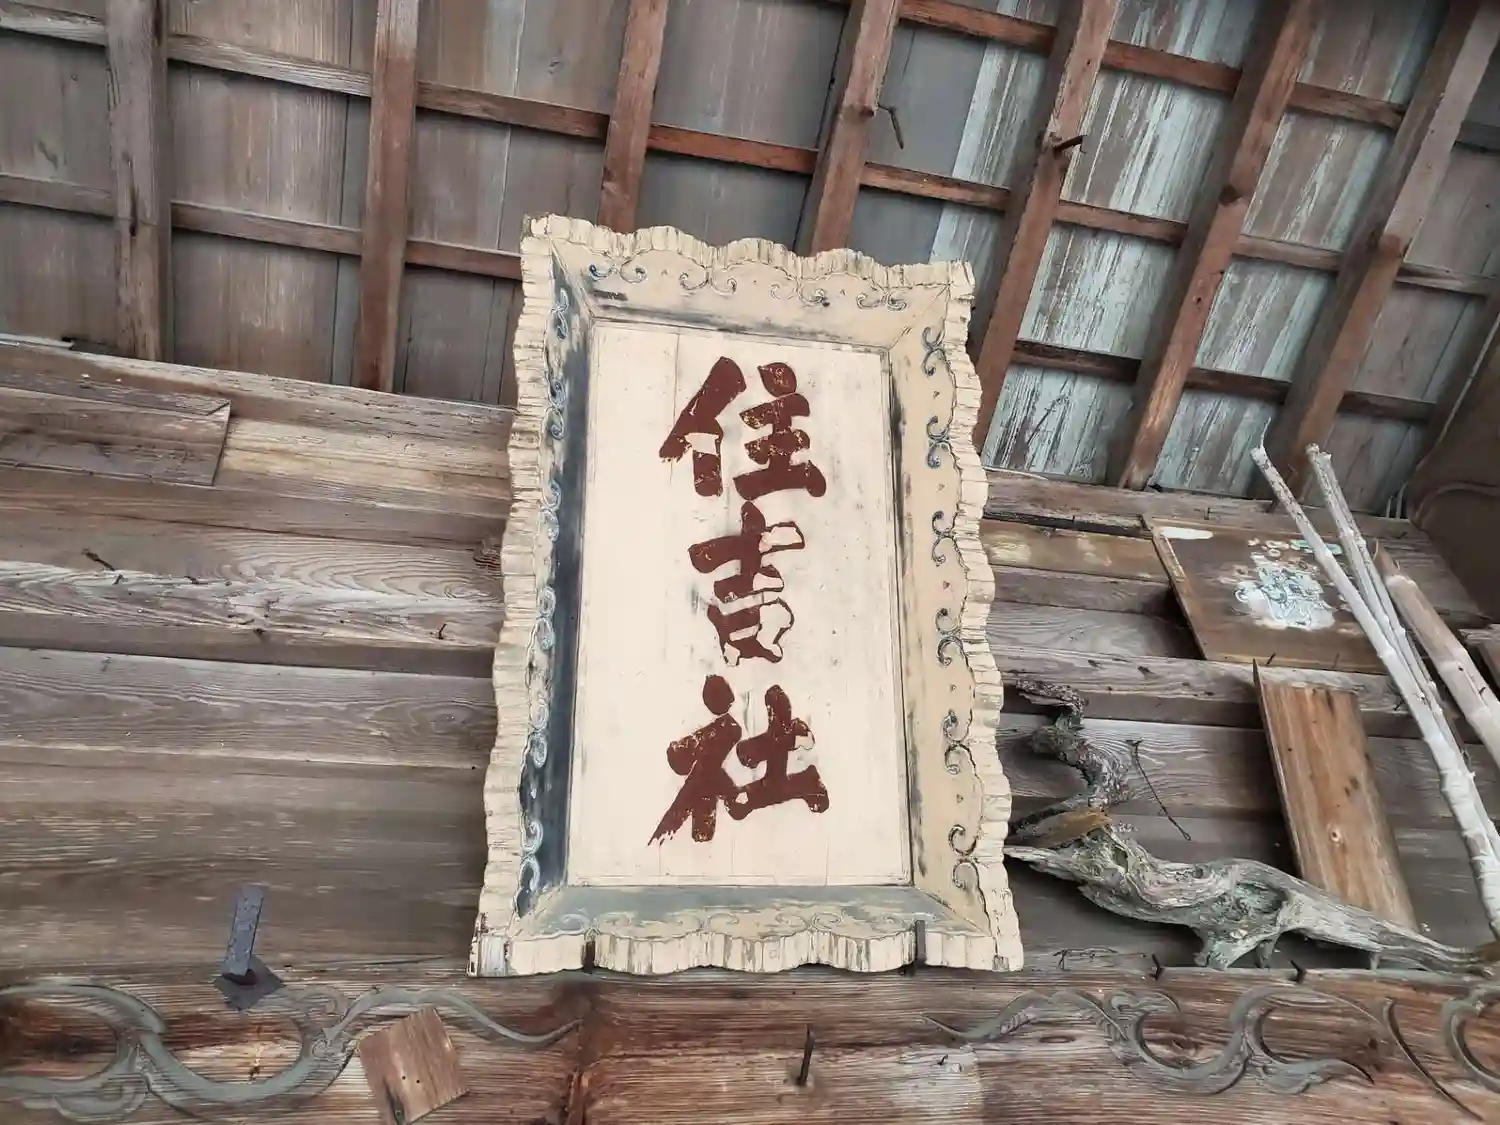 住吉社